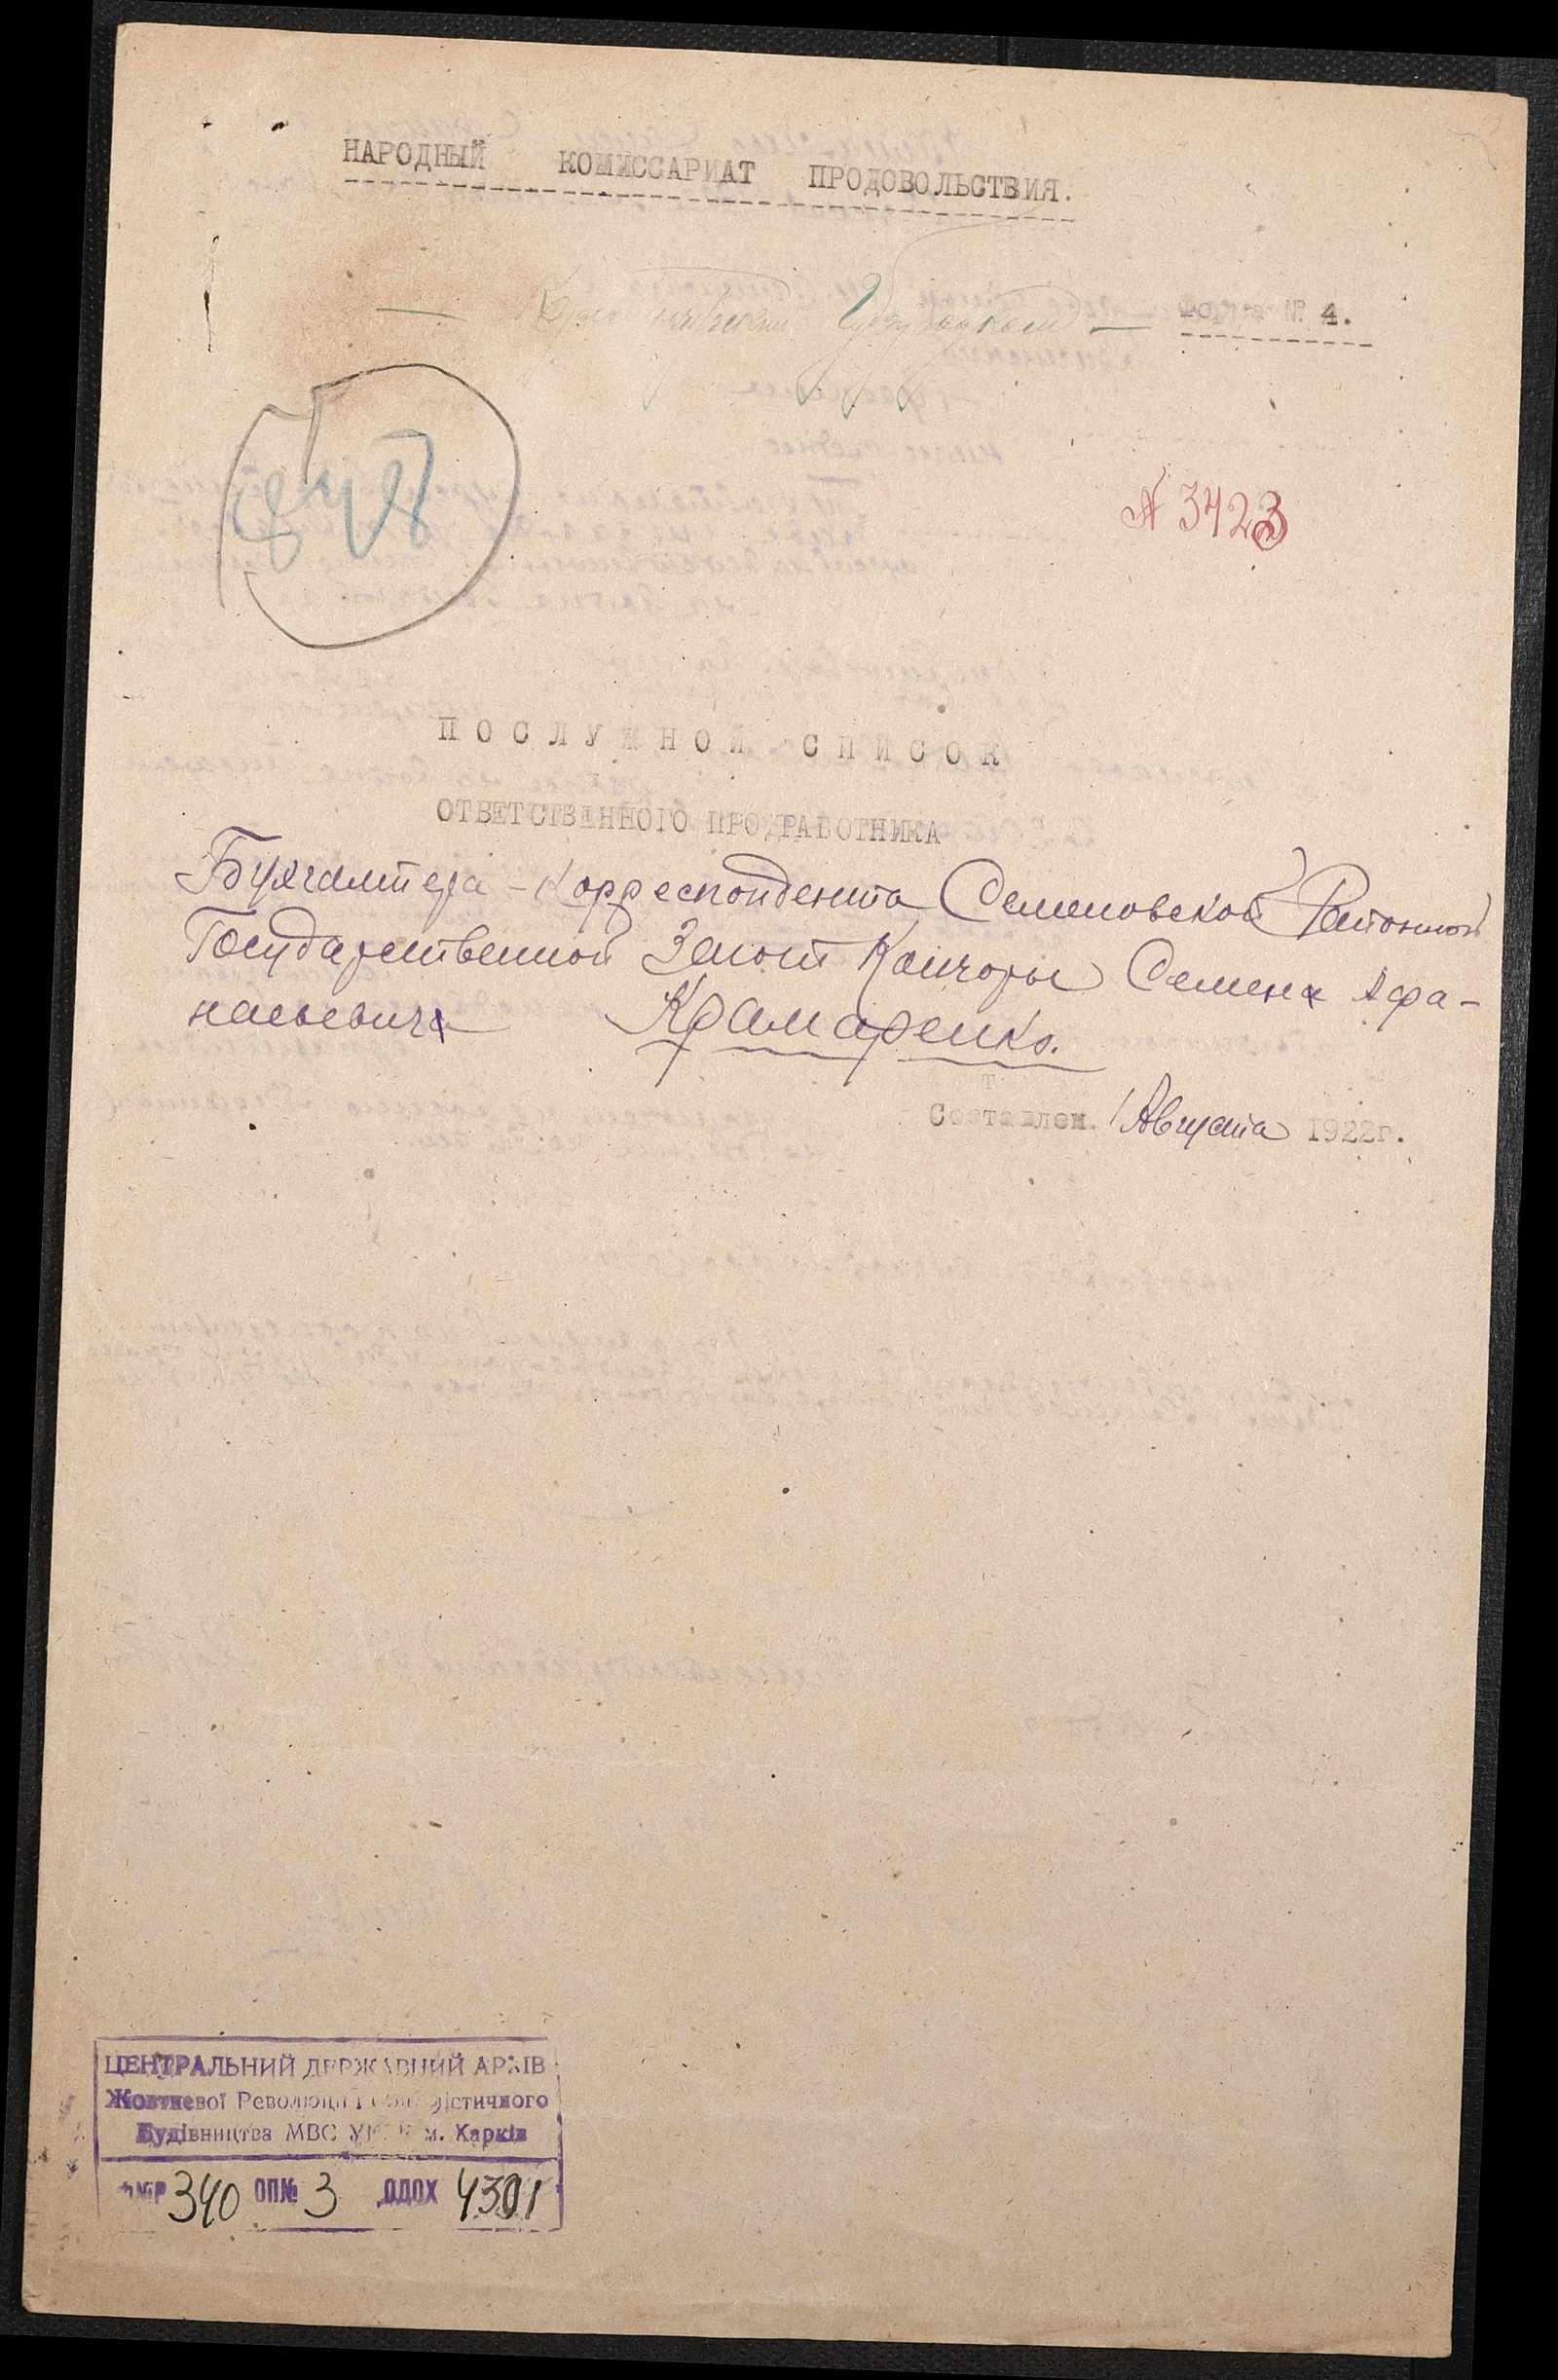 НАРОДНЫЙ КОМИССАРИАТ ПРОДОВОЛЬСТВИЯ.
— Губпродком — № 4.
№ 3423
ПОСЛУЖНОЙ СПИСОК
ОТВЕТСТВЕННОГО ПРОДРАБОТНИКА
Бухгалтера - Корреспондента Семеновской Районной
Государственной Загот Конторы Семена Афа-
насьевича Крамаренко.
Составлен. 1 Августа 1922г.
ЦЕНТРАЛЬНИЙ ДЕРЖАВНИЙ АРХІВ
Жовтневої Революції і соціалістичного
Будівництва МВС УРСР м. Харків
Ф.№Р 340 ОП№ 3 ОД.ЗХ 4301